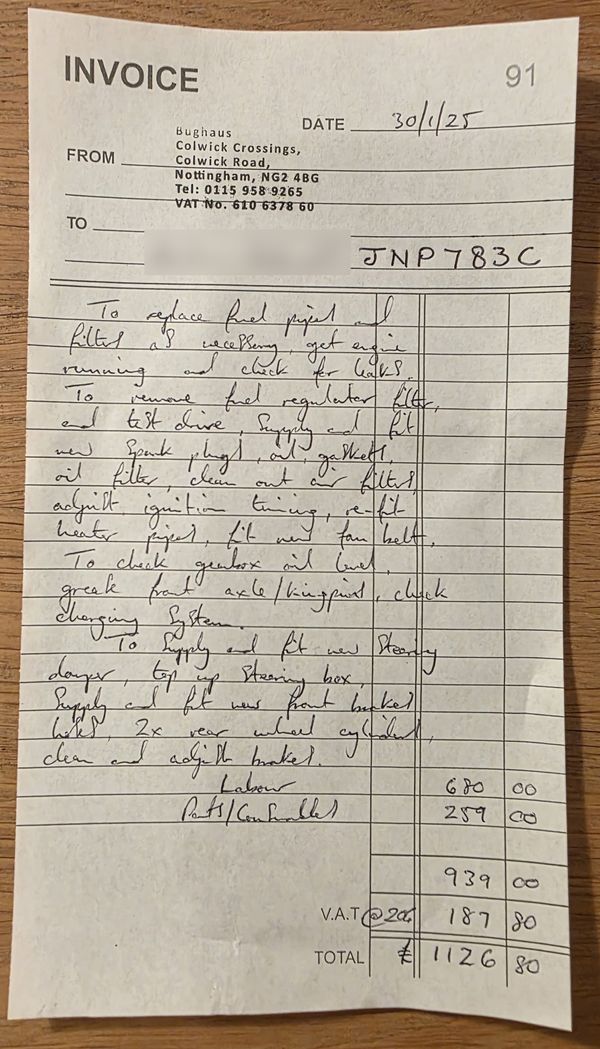 INVOICE 91
DATE 30/1/25
Bughaus
Colwick Crossings,
FROM Colwick Road,
Nottingham, NG2 4BG
Tel: 0115 958 9265
VAT No. 610 6378 60
TO
JNP783C
To replace fuel pipes and
filters as necessary, get engine
running and check for leaks.
To remove fuel regulator filter,
and test drive, supply and fit
new spark plugs, oil, gaskets,
oil filter, clean out air filters,
adjust ignition timing, re-fit
heater pipes, fit new fan belt,
To check gearbox oil level,
grease front axle/kingpins, check
charging system.
To supply and fit new steering
damper, top up steering box,
supply and fit new front brake
2x rear wheel cylinders,
clean and adjust brakes.
Labour 680 00
Parts/Consumables 259 00
939 00
V.A.T @20% 187 80
TOTAL £ 1126 80